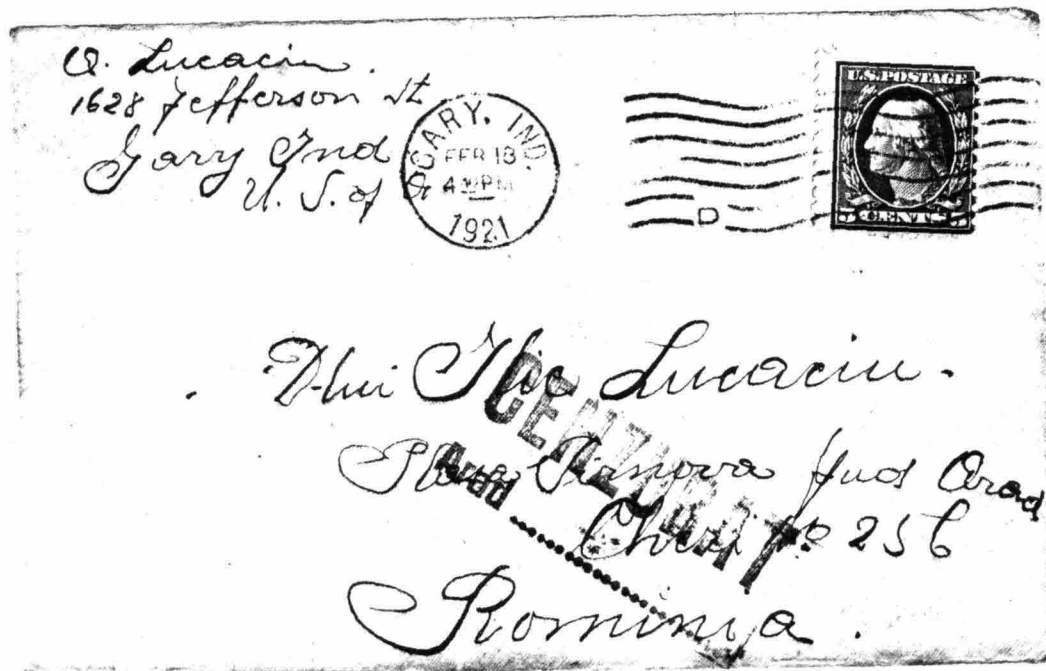 O. Lucaciu.
1628 Jefferson St
Gary Ind
U. S. of A
GARY, IND.
FEB 18
4 PM
1921
D
U.S. POSTAGE
5 CENTS 5
Dlui Ilie Lucaciu.
Tîrnova Jud Arad
No 256
Rominia.
CENZURAT
Arad